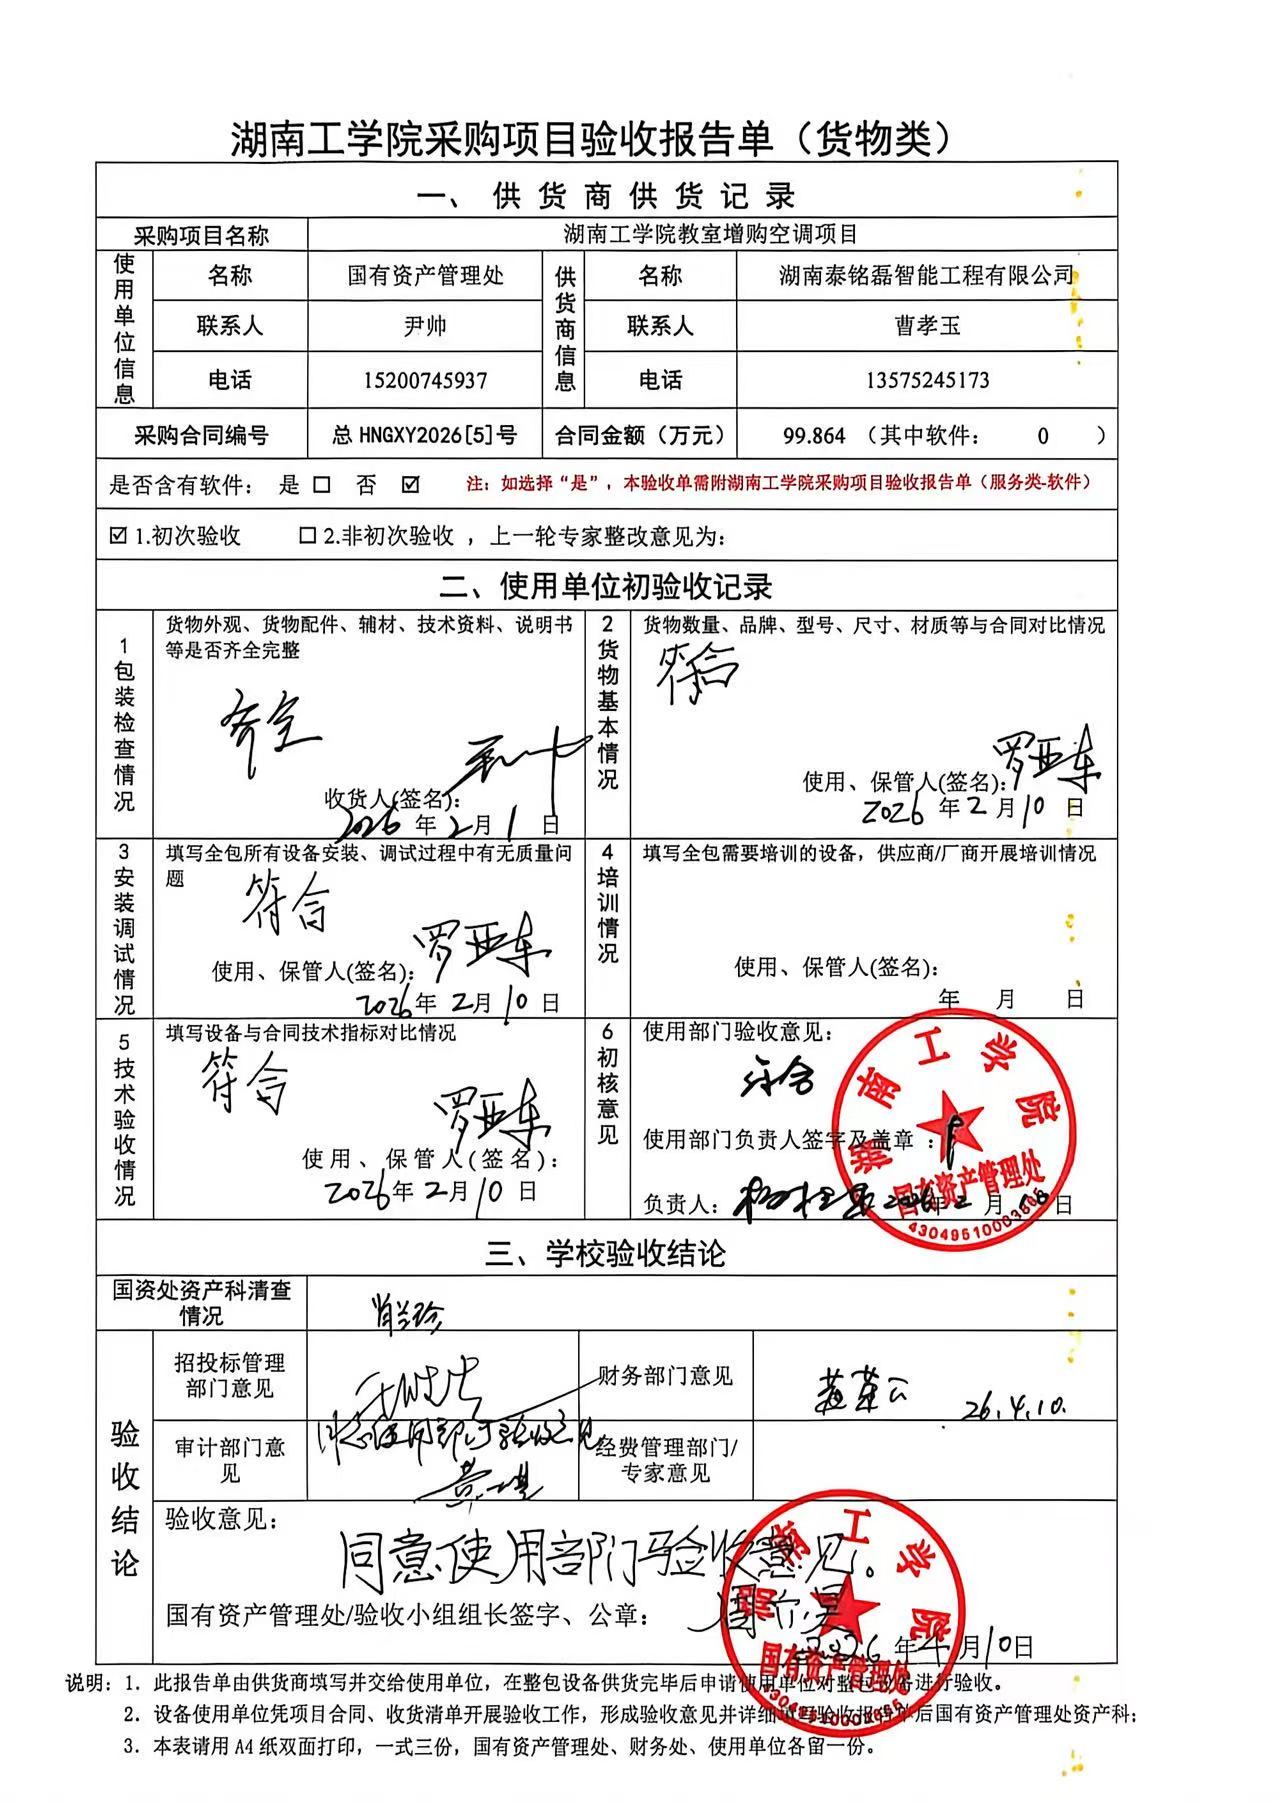 湖南工学院采购项目验收报告单（货物类）
一、供货商供货记录
采购项目名称 湖南工学院教室增购空调项目
使用单位信息 名称 国有资产管理处 供货商信息 名称 湖南泰铭磊智能工程有限公司
联系人 尹帅 联系人 曹孝玉
电话 15200745937 电话 13575245173
采购合同编号 总 HNGXY2026[5]号 合同金额（万元） 99.864 （其中软件： 0 ）
是否含有软件： 是 □ 否 ☑ 注：如选择“是”，本验收单需附湖南工学院采购项目验收报告单（服务类-软件）
☑ 1.初次验收 □ 2.非初次验收 ，上一轮专家整改意见为：
二、使用单位初验收记录
1 包装检查情况
货物外观、货物配件、辅材、技术资料、说明书
等是否齐全完整
齐全
收货人(签名)：
2026 年 2 月 1 日
2 货物基本情况
货物数量、品牌、型号、尺寸、材质等与合同对比情况
符合
使用、保管人(签名)： 罗亚东
2026 年 2 月 10 日
3 安装调试情况
填写全包所有设备安装、调试过程中有无质量问
题
符合
使用、保管人(签名)： 罗亚东
2026 年 2 月 10 日
4 培训情况
填写全包需要培训的设备，供应商/厂商开展培训情况
使用、保管人(签名)：
年 月 日
5 技术验收情况
填写设备与合同技术指标对比情况
符合
罗亚东
使用、保管人(签名)：
2026 年 2 月 10 日
6 初核意见
使用部门验收意见：
符合
使用部门负责人签字及盖章 ：
负责人： 2026 年 2 月 日
湖南工学院
国有资产管理处
三、学校验收结论
国资处资产科清查
情况
肖兰珍
验收结论
招投标管理
部门意见
财务部门意见
26.4.10.
审计部门意
见
同意使用部门验收意见
经费管理部门/
专家意见
验收意见：
同意使用部门验收意见。
国有资产管理处/验收小组组长签字、公章：
2026 年 4 月 10 日
湖南工学院
国有资产管理处
说明：1. 此报告单由供货商填写并交给使用单位，在整包设备供货完毕后申请使用单位对整包设备进行验收。
2. 设备使用单位凭项目合同、收货清单开展验收工作，形成验收意见并详细填写验收报告单后国有资产管理处资产科；
3. 本表请用 A4 纸双面打印，一式三份，国有资产管理处、财务处、使用单位各留一份。